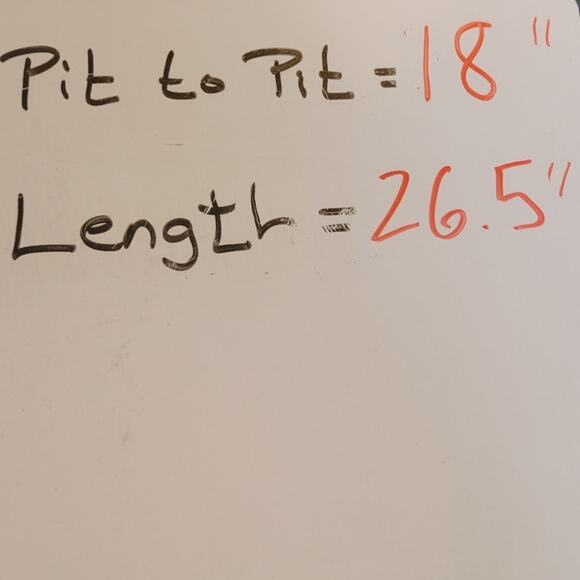 Pit to Pit = 18"
Length = 26.5"